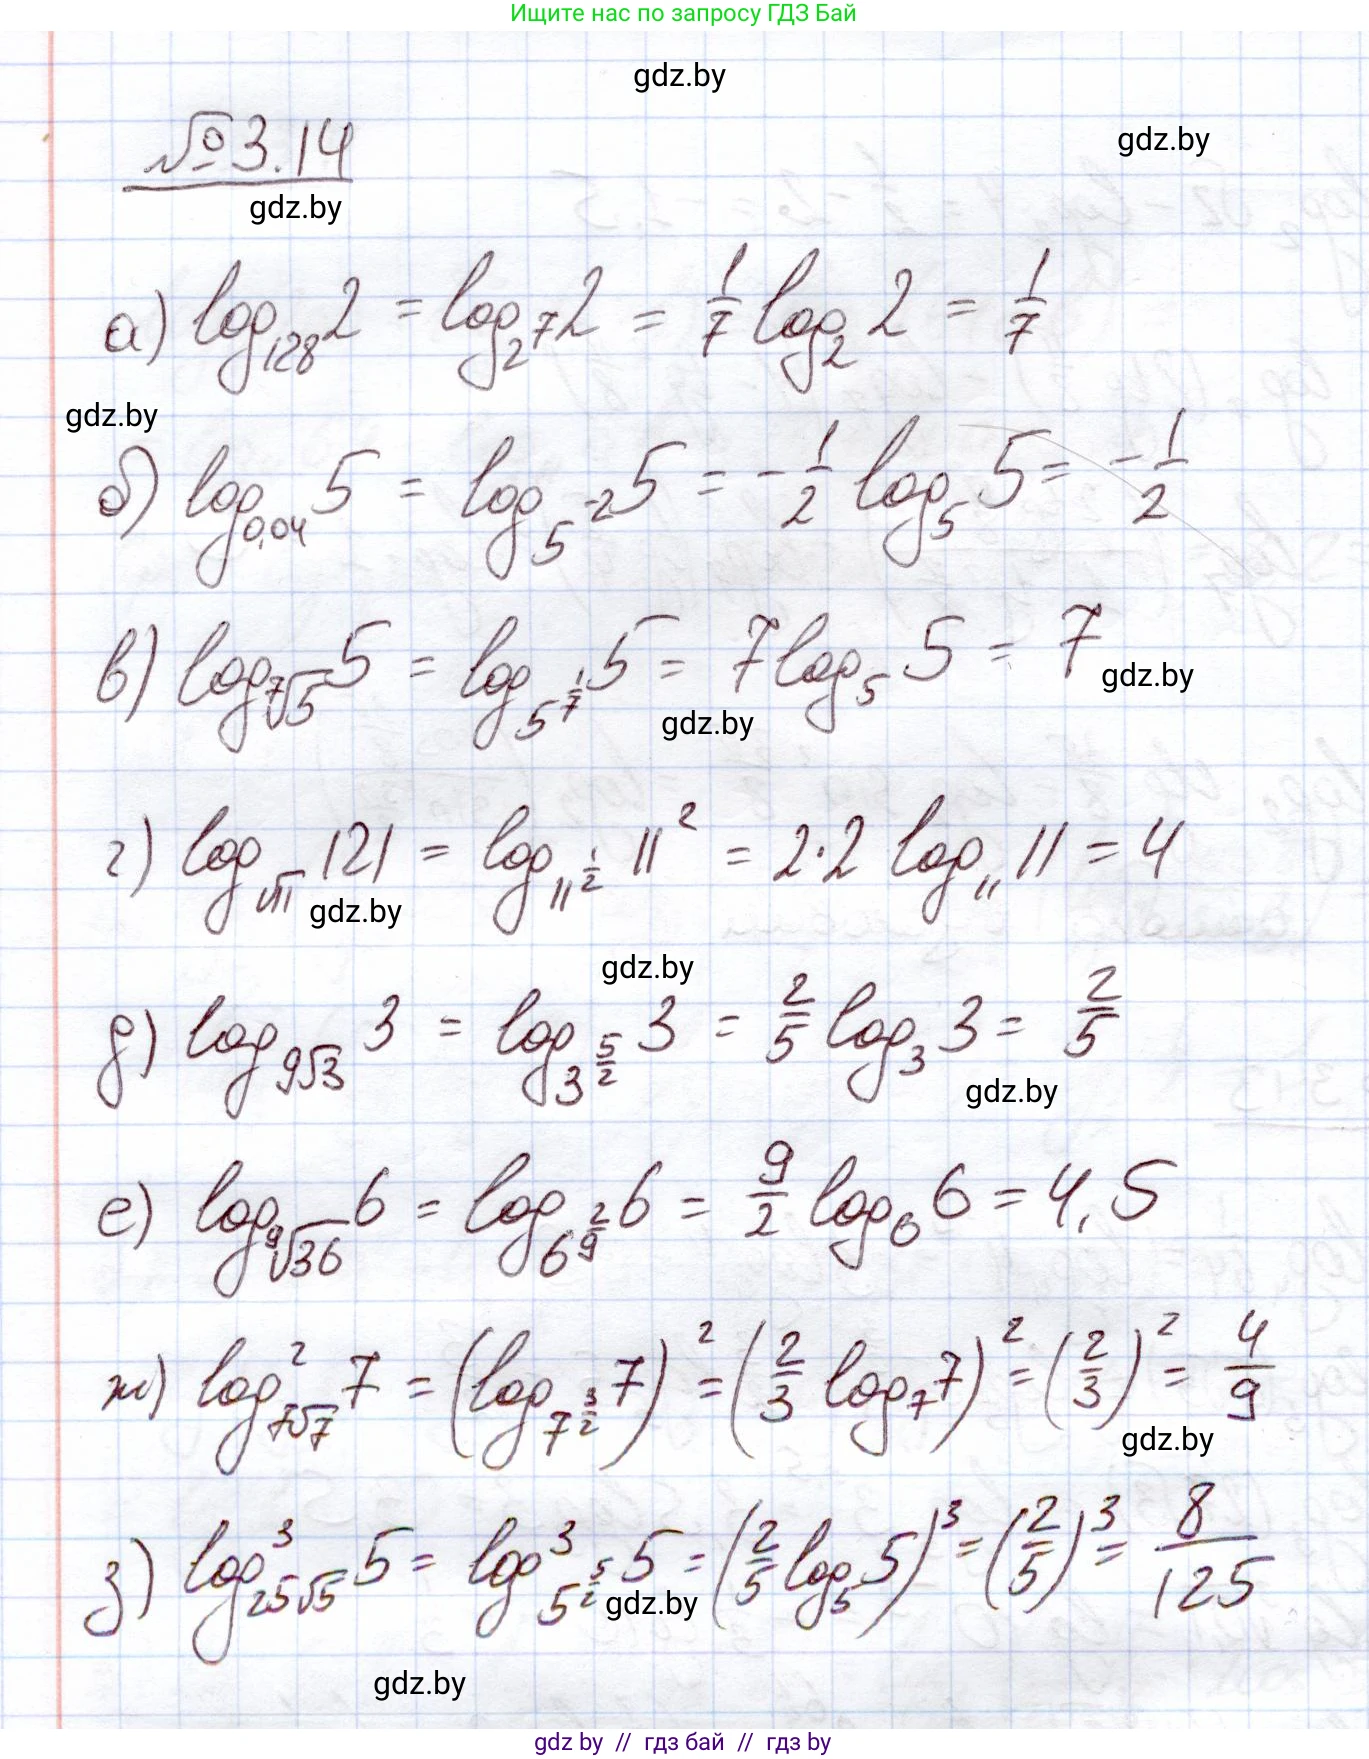 Ищите нас по запросу ГДЗ Бай
gdz.by
gdz.by
№ 3.14
gdz.by
а) log₁₂₈ 2 = log_{2^7} 2 = 1/7 log₂ 2 = 1/7
gdz.by
б) log_{0,04} 5 = log_{5^{-2}} 5 = -1/2 log₅ 5 = -1/2
в) log_{⁷√5} 5 = log_{5^{1/7}} 5 = 7 log₅ 5 = 7
gdz.by
gdz.by
г) log_{√11} 121 = log_{11^{1/2}} 11² = 2·2 log₁₁ 11 = 4
gdz.by
gdz.by
д) log_{9√3} 3 = log_{3^{5/2}} 3 = 2/5 log₃ 3 = 2/5
gdz.by
е) log_{⁹√36} 6 = log_{6^{2/9}} 6 = 9/2 log₆ 6 = 4,5
ж) log²_{7√7} 7 = (log_{7^{3/2}} 7)² = (2/3 log₇ 7)² = (2/3)² = 4/9
gdz.by
з) log³_{25√5} 5 = log³_{5^{5/2}} 5 = (2/5 log₅ 5)³ = (2/5)³ = 8/125
gdz.by
gdz.by
gdz by // гдз бай // гдз by